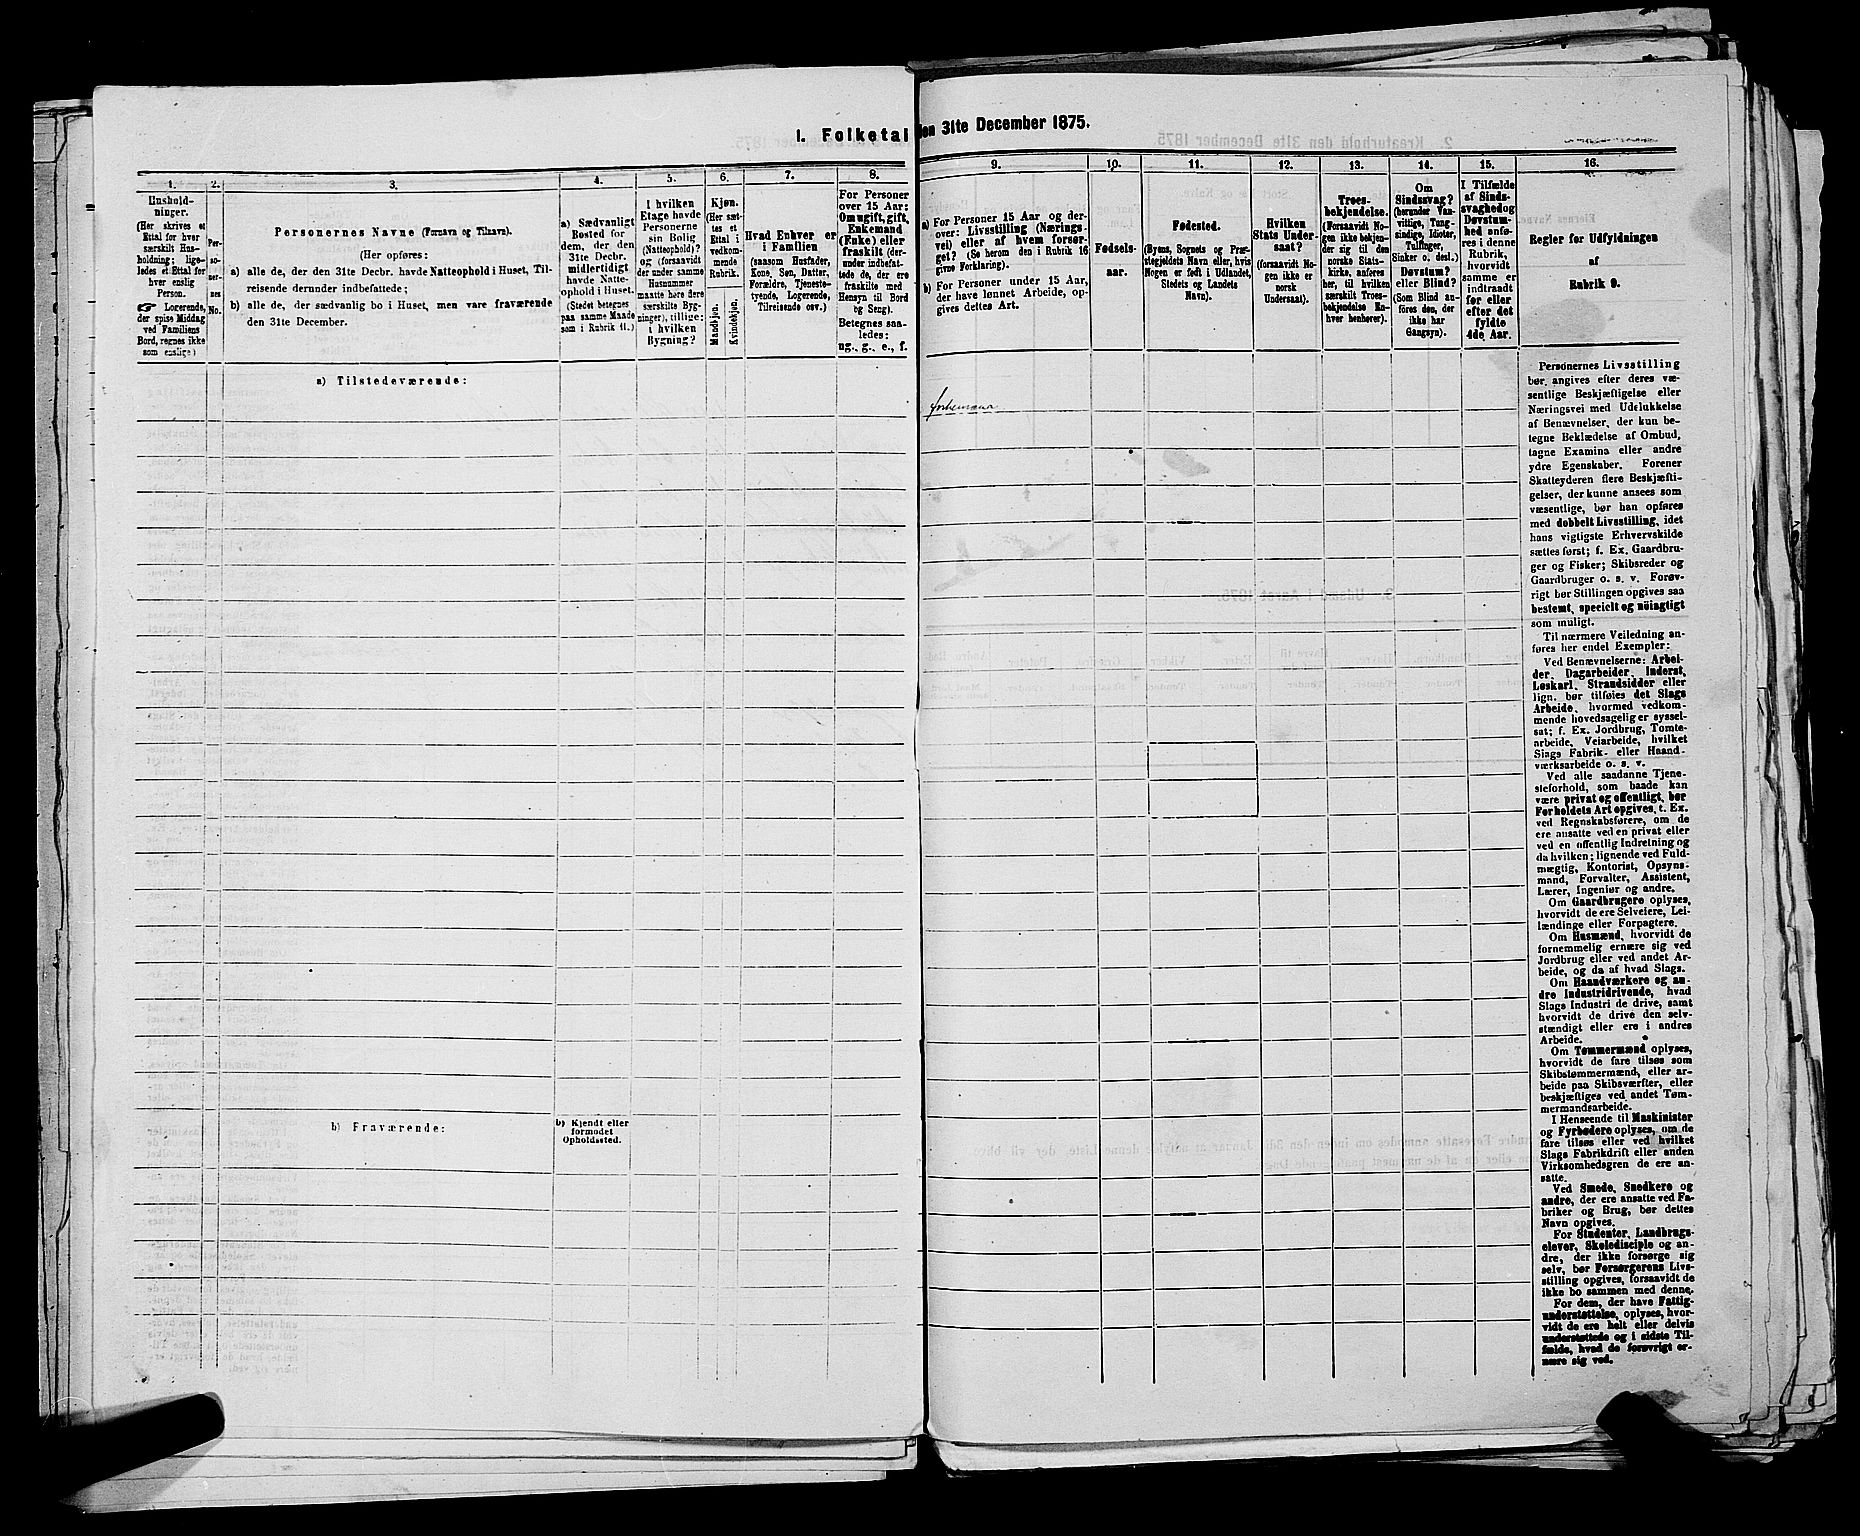 1. Folketal den 31te December 1875.
1.
Husholdninger.
(Her skrives et
Ettal for hver
særskilt Husholdning;
ligeledes et Ettal for
hver enslig
Person.
Logerende,
der spise Middag
ved Familiens
Bord, regnes ikke
som enslige)
2.
Personernes
No.
3.
Personernes Navne (Fornavn og Tilnavn).
(Her opføres:
a) alle de, der den 31te Decbr. havde Natteophold i Huset, Tilreisende derunder indbefattede;
b) alle de, der sædvanlig bo i Huset, men vare fraværende
den 31te December.
4.
a) Sædvanligt
Bosted for
dem, der den
31te Decbr.
midlertidigt
havde Natteophold i Huset.
(Stedet betegnes
paa samme Maade
som i Rubrik 11.)
5.
I hvilken
Etage havde
Personerne
sin Bolig
(Natteophold)?
og (forsaavidt
der under samme
Husnummer
maatte høre flere
særskilte Bygninger), tillige:
i hvilken
Bygning?
6.
Kjøn.
(Her sættes et
Ettal i
vedkommende
Rubrik.
Mandkjøn.
Kvindekjøn.
7.
Hvad Enhver er
i Familien
(saasom Husfader,
Kone, Søn, Datter,
Forældre, Tjenestetyende, Logerende,
Tilreisende osv.)
8.
For Personer
over 15 Aar:
Om ugift, gift,
Enkemand
(Enke) eller
fraskilt (derunder indbefattede de, der ere
fraskilte med
Hensyn til Bord
og Seng).
Betegnes saaledes:
ug., g., e., f.
9.
a) For Personer 15 Aar og derover: Livsstilling (Næringsvei) eller af hvem forsørget? (Se herom den i Rubrik 16
givne Forklaring).
b) For Personer under 15 Aar,
der have lønnet Arbeide, opgives dettes Art.
10.
Fødselsaar.
11.
Fødested.
(Byens, Sognets og Præstegjeldets Navn eller, hvis
Nogen er født i Udlandet,
Stedets og Landets
Navn).
12.
Hvilken
Stats Undersaat?
(forsaavidt Nogen ikke er
norsk
Undersaat).
13.
Troesbekjendelse.
(Forsaavidt Nogen ikke bekjender sig til den
norske Statskirke, anføres
her, til hvilken
særskilt Troesbekjendelse Enhver henhører).
14.
Om
Sindssvag?
(herunder Vanvittige, Tungsindige, Idioter,
Tullinger,
Sinker o. desl.)
Døvstum?
eller Blind?
(Som Blind anføres den, der
ikke har
Gangsyn).
15.
I Tilfælde
af Sindssvaghed og
Døvstumhed anføres i denne
Rubrik,
hvorvidt
samme er
indtraadt
før eller
efter det
fyldte
4de Aar.
16.
Regler for Udfyldningen
af
Rubrik 9.
a) Tilstedeværende:
b) Fraværende:
b) Kjendt eller
formodet
Opholdssted.
Personernes Livsstilling
bør angives efter deres væsentlige Beskjæftigelse eller
Næringsvei med Udelukkelse
af Benævnelser, der kun betegne Beklædelse af Ombud,
tagne Examina eller andre
ydre Egenskaber. Forener
Skatteyderen flere Beskjæftigelser, der kunne ansees som
væsentlige, bør han opføres
med dobbelt Livsstilling, idet
hans vigtigste Erhvervskilde
sættes først; f. Ex. Gaardbruger og Fisker; Skibsreder og
Gaardbruger o. s. v. Forøvrigt bør Stillingen opgives saa
bestemt, specielt og nøiagtigt
som muligt.
Til nærmere Veiledning anføres her endel Exempler:
Ved Benævnelserne: Arbeider, Dagarbeider, Inderst,
Løskarl, Strandsidder eller
lign. bør tilføies det Slags
Arbeide, hvormed vedkommende hovedsagelig er sysselsat; f. Ex. Jordbrug, Tomtearbeide, Veiarbeide, hvilket
Slags Fabrik- eller Haandværksarbeide o. s. v.
Ved alle saadanne Tjenesteforhold, som baade kan
være privat og offentligt, bør
Forholdets Art opgives, t. Ex.
ved Regnskabsførere, om de
ere ansatte ved en privat eller
ved en offentlig Indretning og
da hvilken; lignende ved Fuldmægtig, Kontorist, Opsynsmand, Forvalter, Assistent,
Lærer, Ingeniør og andre.
Om Gaardbrugere oplyses,
hvorvidt de ere Selveiere, Leilændinge eller Forpagtere.
Om Husmænd, hvorvidt de
fornemmelig ernære sig ved
Jordbrug eller ved andet Arbeide, og da af hvad Slags.
Om Haandværkere og andre Industridrivende, hvad
Slags Industri de drive, samt
hvorvidt de drive den selvstændigt eller ere i andres
Arbeide.
Om Tømmermænd oplyses,
hvorvidt de fare tilsøs som
Skibstømmermænd, eller arbeide paa Skibsværfter, eller
beskjæftiges ved andet Tømmermandsarbeide.
I Henseende til Maskinister
og Fyrbødere oplyses, om de
fare tilsøs eller ved hvilket
Slags Fabrikdrift eller anden
Virksomhedsgren de ere ansatte.
Ved Smede, Snedkere og
andre, der ere ansatte ved Fabriker og Brug, bør dettes
Navn opgives.
For Studenter, Landbrugselever, Skoledisciple og andre, der ikke forsørge sig
selv, bør Forsørgerens Livsstilling opgives, forsaavidt de
ikke bo sammen med denne.
For dem, der have Fattigunderstøttelse, oplyses, hvorvidt de ere helt eller delvis
understøttede og i sidste Tilfælde, hvad de forøvrigt ernære sig ved.